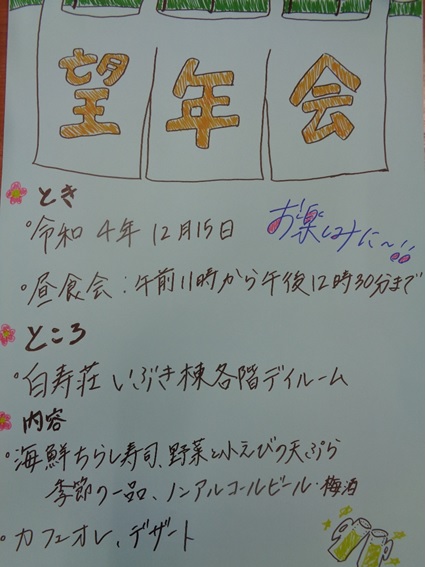 望年会
とき
・令和4年12月15日
お楽しみに〜!!
・昼食会：午前11時から午後12時30分まで
ところ
・白寿荘いぶき棟各階デイルーム
内容
・海鮮ちらし寿司、野菜と小えびの天ぷら
季節の一品、ノンアルコールビール・梅酒
・カフェオレ、デザート